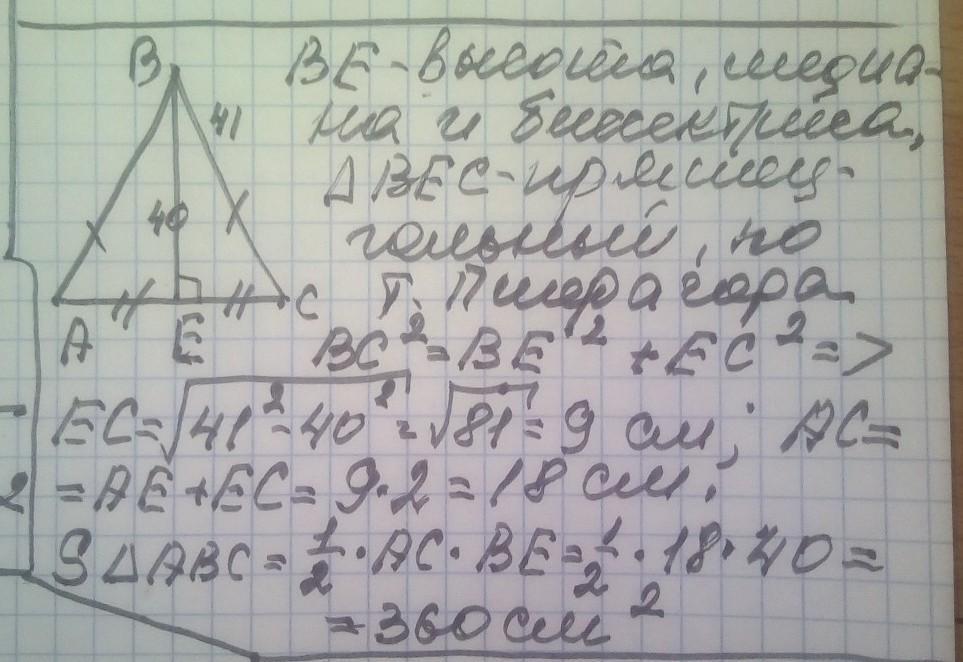 B
41
40
A E C
BE-высота, медиа-
на и биссектриса,
△BEC-прямоу-
гольный, по
т. Пифагора
BC² = BE² + EC² =>
EC = √41² - 40² = √81 = 9 см; AC =
= AE + EC = 9·2 = 18 см;
S △ABC = 1/2 · AC · BE = 1/2 · 18 · 40 =
= 360 см²
2